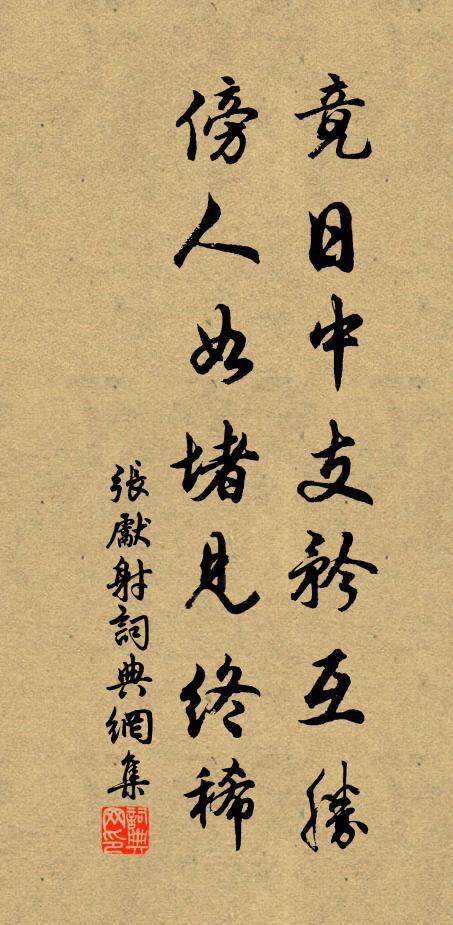 竟日中支矜互勝
傍人如堵見終稀
張獻射詞典網集
詞典網印